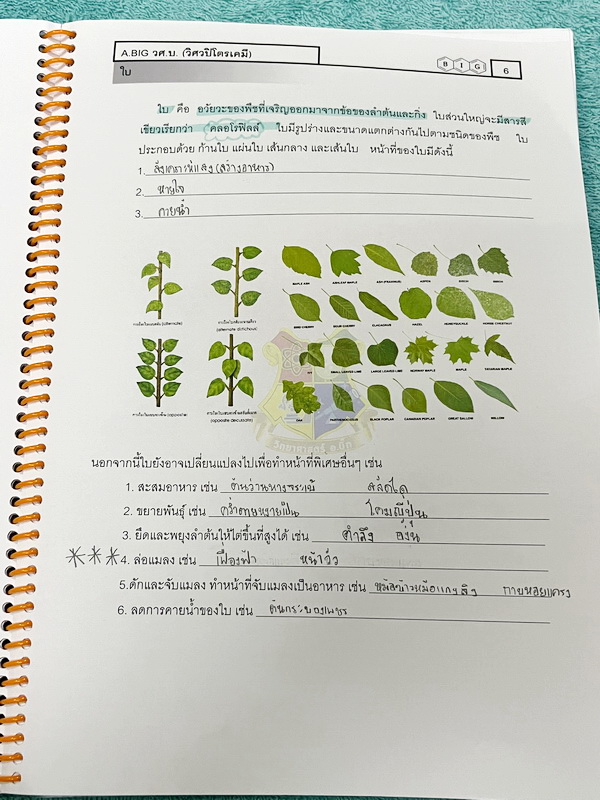 A.BIG วศ.บ. (วิศวปิโตรเคมี)
B I G
6
ใบ
ใบ คือ อวัยวะของพืชที่เจริญออกมาจากข้อของลำต้นและกิ่ง ใบส่วนใหญ่จะมีสารสี
เขียวเรียกว่า คลอโรฟิลล์ ใบมีรูปร่างและขนาดแตกต่างกันไปตามชนิดของพืช ใบ
ประกอบด้วย ก้านใบ แผ่นใบ เส้นกลาง และเส้นใบ หน้าที่ของใบมีดังนี้
1. สังเคราะห์แสง (สร้างอาหาร)
2. หายใจ
3. คายน้ำ
MAPLE ASH ASHLEAF MAPLE ASH (FRAXINUS) ASPEN BIRCH BIRCH
BIRD CHERRY SOUR CHERRY ELAEAGNUS HAZEL HONEYSUCKLE HORSE CHESTNUT
การเรียงใบแบบสลับ (alternate)
(alternate distichous)
SMALL-LEAVED LIME LARGE-LEAVED LIME NORWAY MAPLE MAPLE TATARIAN MAPLE
OAK BLACK POPLAR CANADIAN POPLAR GREAT SALLOW WILLOW
(opposite)
(opposite decussate)
วิทยาศาสตร์ อ.บิ๊ก
นอกจากนี้ใบยังอาจเปลี่ยนแปลงไปเพื่อทำหน้าที่พิเศษอื่นๆ เช่น
1. สะสมอาหาร เช่น ต้นว่านหางจระเข้ สลัดได
2. ขยายพันธุ์ เช่น คว่ำตายหงายเป็น โคมญี่ปุ่น
3. ยึดและพยุงลำต้นให้ไต่ขึ้นที่สูงได้ เช่น ตำลึง องุ่น
***4. ล่อแมลง เช่น เฟื่องฟ้า หน้าวัว
5.ดักและจับแมลง ทำหน้าที่จับแมลงเป็นอาหาร เช่น หม้อข้าวหม้อแกงลิง กาบหอยแครง
6. ลดการคายน้ำของใบ เช่น ต้นกระบองเพชร